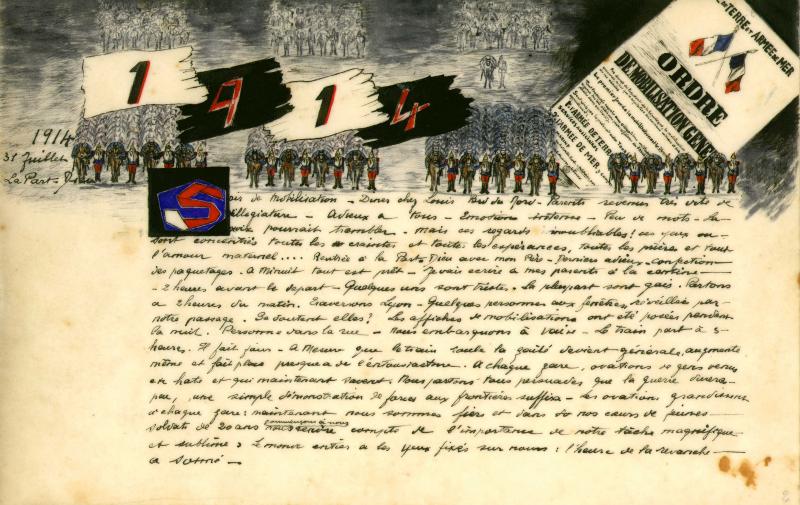 1914
DE TERRE ET ARMÉE DE MER
ORDRE
DE MOBILISATION GENERALE
ARMÉE DE TERRE
ARMÉE DE MER
1914
31 Juillet
La Part-Dieu
S
de Mobilisation - Diner chez Louis Bard du Nord - Parents revenus très vite de
villegiature - Adieux a tous - Emotion intense - Peu de mots - La
voix pourrait trembler - mais ces regards inoubliables! ces yeux ou
sont concentrés toutes les craintes et toutes les espérances, toutes les prières et tout
l'amour maternel.... Rentrée a la Part-Dieu avec mon Père - Derniers adieux - confection
des paquetages. A minuit tout est prêt - Je vais ecrire a mes parents a la cantine -
- 2 heures avant le depart - Quelques uns sont tristes. La plupart sont gais. Partons
a 2 heures du matin. Traversons Lyon - Quelques personnes aux fenêtres, réveillées par
notre passage. Se doutent elles? Les affiches de mobilisations ont été posées pendant
la nuit. Personne dans la rue - nous embarquons à Vaise - Le train part a 5
heures. Il fait jour - A mesure que le train roule la gaité devient générale, augmente
même et fait place presque a de l'enthousiasme. A chaque gare, ovations de gens venus
en hate et qui maintenant savent. Nous partons tous persuadés que la guerre durera
peu, une simple démonstration de forces aux frontières suffira - Les ovations grandissent
a chaque gare: maintenant nous sommes fiers et dans nos cœurs de jeunes
soldats de 20 ans commençons a nous rendre compte de l'importance de notre tâche magnifique
et sublime: Le monde entier a les yeux fixés sur nous: l'heure de la revanche
a sonné -